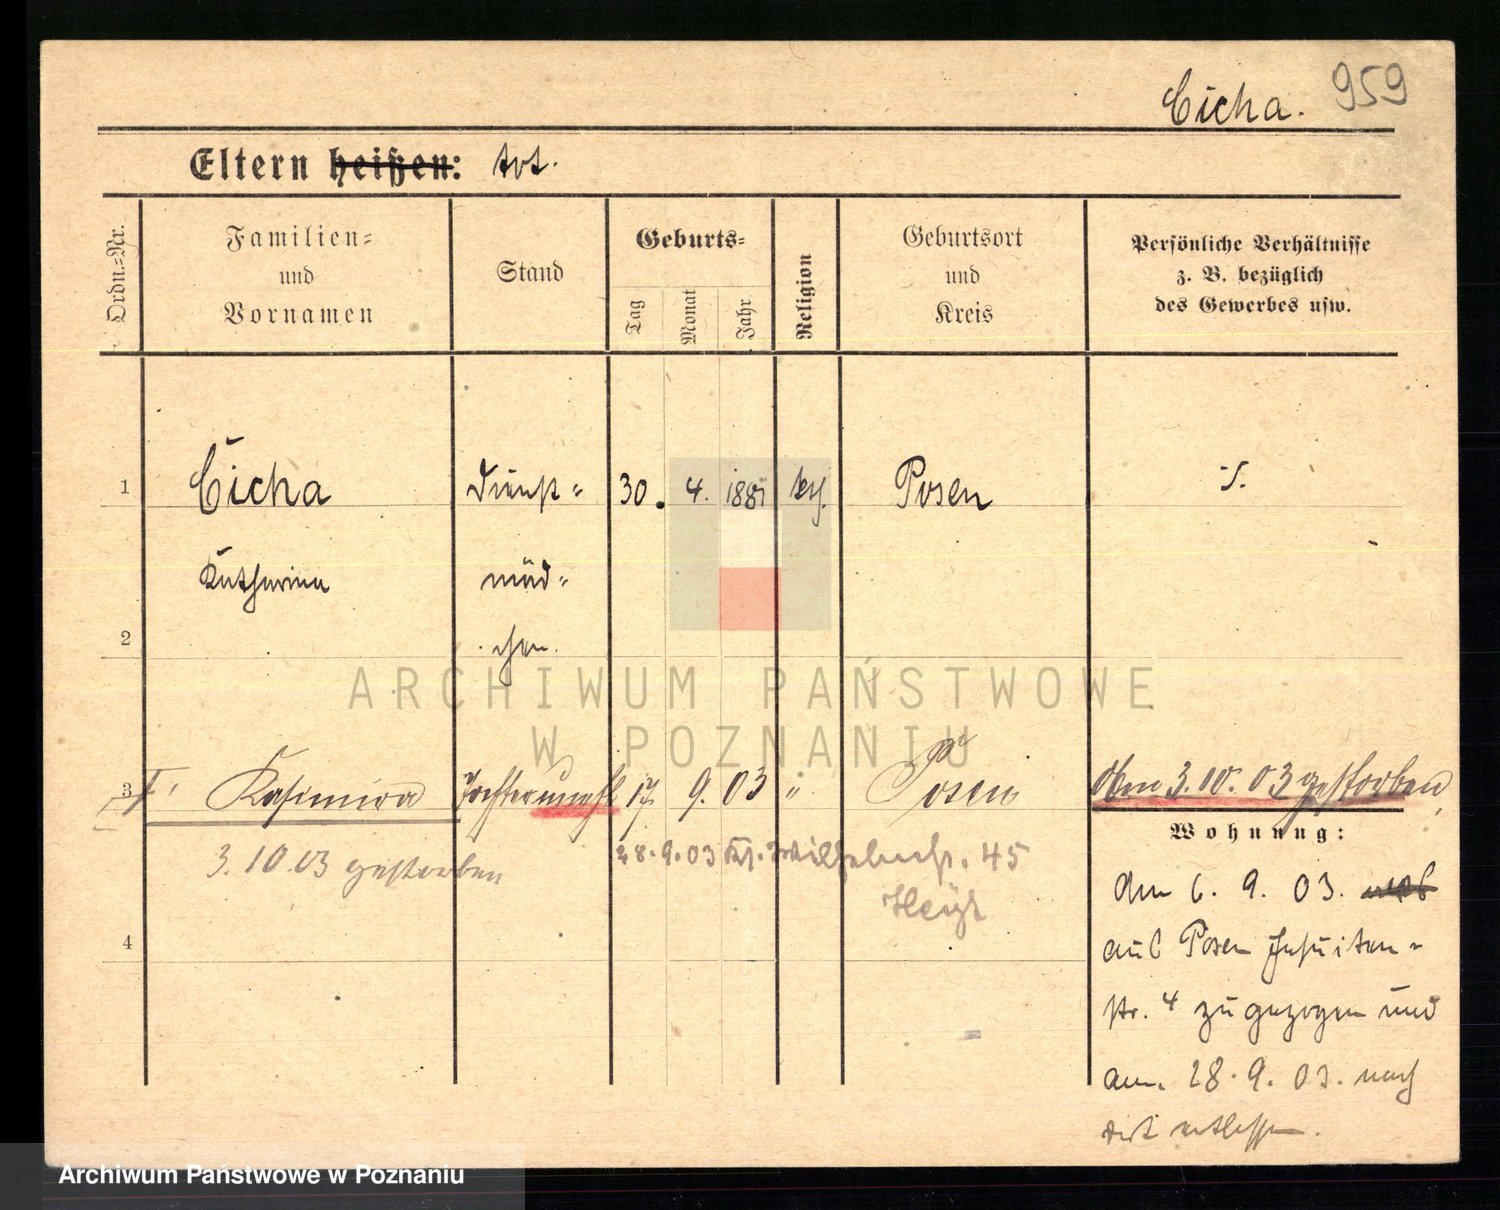 Cicha. 959
Eltern heißen: tot.
Ordn.-Nr.
Familien-
und
Vornamen
Stand
Geburts-
Tag
Monat
Jahr
Religion
Geburtsort
und
Kreis
Persönliche Verhältnisse
z. B. bezüglich
des Gewerbes usw.
1 Cicha Dienst- 30. 4. 1881 kth. Posen
Katharina mäd-
2 chen.
3 Kasimira Tochter unehl 17. 9. 03 " Posen Am 3.10.03 gestorben
Wohnung:
3.10.03 gestorben 28.9.03 Wilhelmstr. 45
4
Am 6. 9. 03.
aus Posen Jesuiten-
str. 4 zugezogen und
am 28.9.03. nach
dort entlassen.
ARCHIWUM PAŃSTWOWE
W POZNANIU
Archiwum Państwowe w Poznaniu